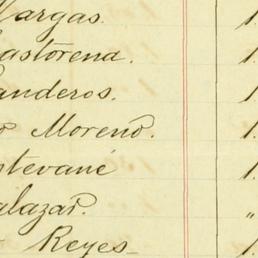 Vargas. 1.
astorena. 1.
anderos. 1.
o Moreno. 1.
stevané 1.
alazar. "
Reyes 1.